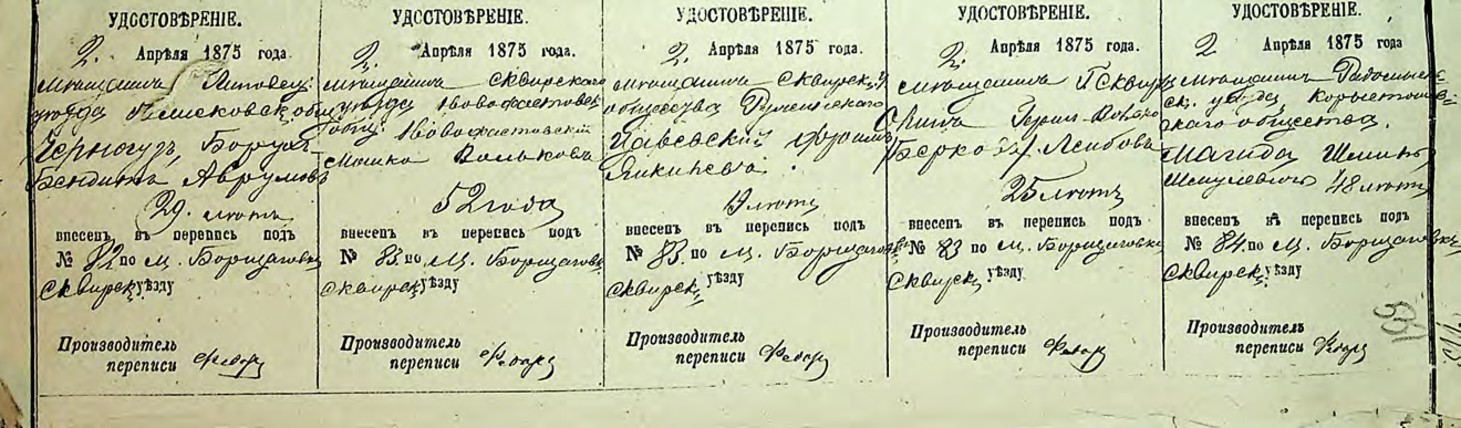 УДОСТОВѢРЕНІЕ.
2. Апрѣля 1875 года.
мѣщанинъ Липовец:
уѣзда общ
Черногузъ, Борух
Бендитъ Аврумовъ
29. лѣтъ
внесенъ въ перепись подъ
№ 82 по м. Борщаговкѣ
Сквирск. уѣзду
Производитель
переписи
УДОСТОВѢРЕНІЕ.
2. Апрѣля 1875 года.
мѣщанинъ Сквирскаго
уѣзда Новофастовск
общ: Новофастовскій
Мошко Вольковъ
52 года
внесенъ въ перепись подъ
№ 83. по м. Борщаговк
Сквирск. уѣзду
Производитель
переписи
УДОСТОВѢРЕНІЕ.
2. Апрѣля 1875 года.
мѣщанинъ Сквирск. у
общества Ружинскаго
лѣтъ
внесенъ въ перепись подъ
№ 83. по м. Борщаговкѣ
Сквирск. уѣзду
Производитель
переписи
УДОСТОВѢРЕНІЕ.
2. Апрѣля 1875 года.
мѣщанинъ Г. Сквиры
Берко Лейбовъ
25 лѣтъ
внесенъ въ перепись подъ
№ 83 по м. Борщаговкѣ
Сквирск. уѣзду
Производитель
переписи
УДОСТОВѢРЕНІЕ.
2 Апрѣля 1875 года
мѣщанинъ Радомысль-
ск. уѣзда, Коростышев-
скаго общества.
Магидъ
Шмулевичъ 48 лѣтъ
внесенъ въ перепись подъ
№ 84. по м. Борщаговкѣ
Сквирск. уѣзду
Производитель
переписи